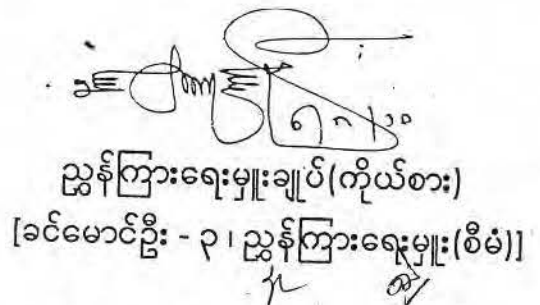 ညွှန်ကြားရေးမှူးချုပ်(ကိုယ်စား)
[ခင်မောင်ဦး - ၃ ၊ ညွှန်ကြားရေးမှူး(စီမံ)]